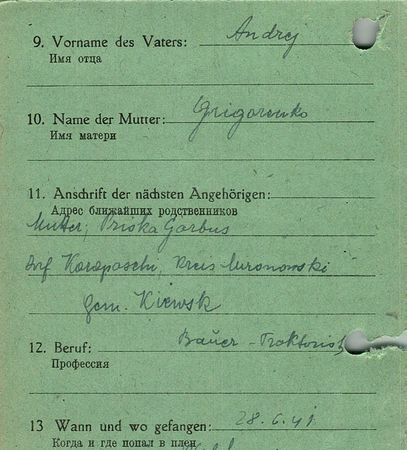 9. Vorname des Vaters: Andrej
Имя отца
10. Name der Mutter: Grigorenko
Имя матери
11. Anschrift der nächsten Angehörigen:
Адрес ближайших родственников
Mutter, Priska Gorbus
Dorf Karapaschi, Kreis Muronowski
Kiewsk
12. Beruf: Bauer-Traktorist
Профессия
13 Wann und wo gefangen: 28.6.41
Когда и где попал в плен